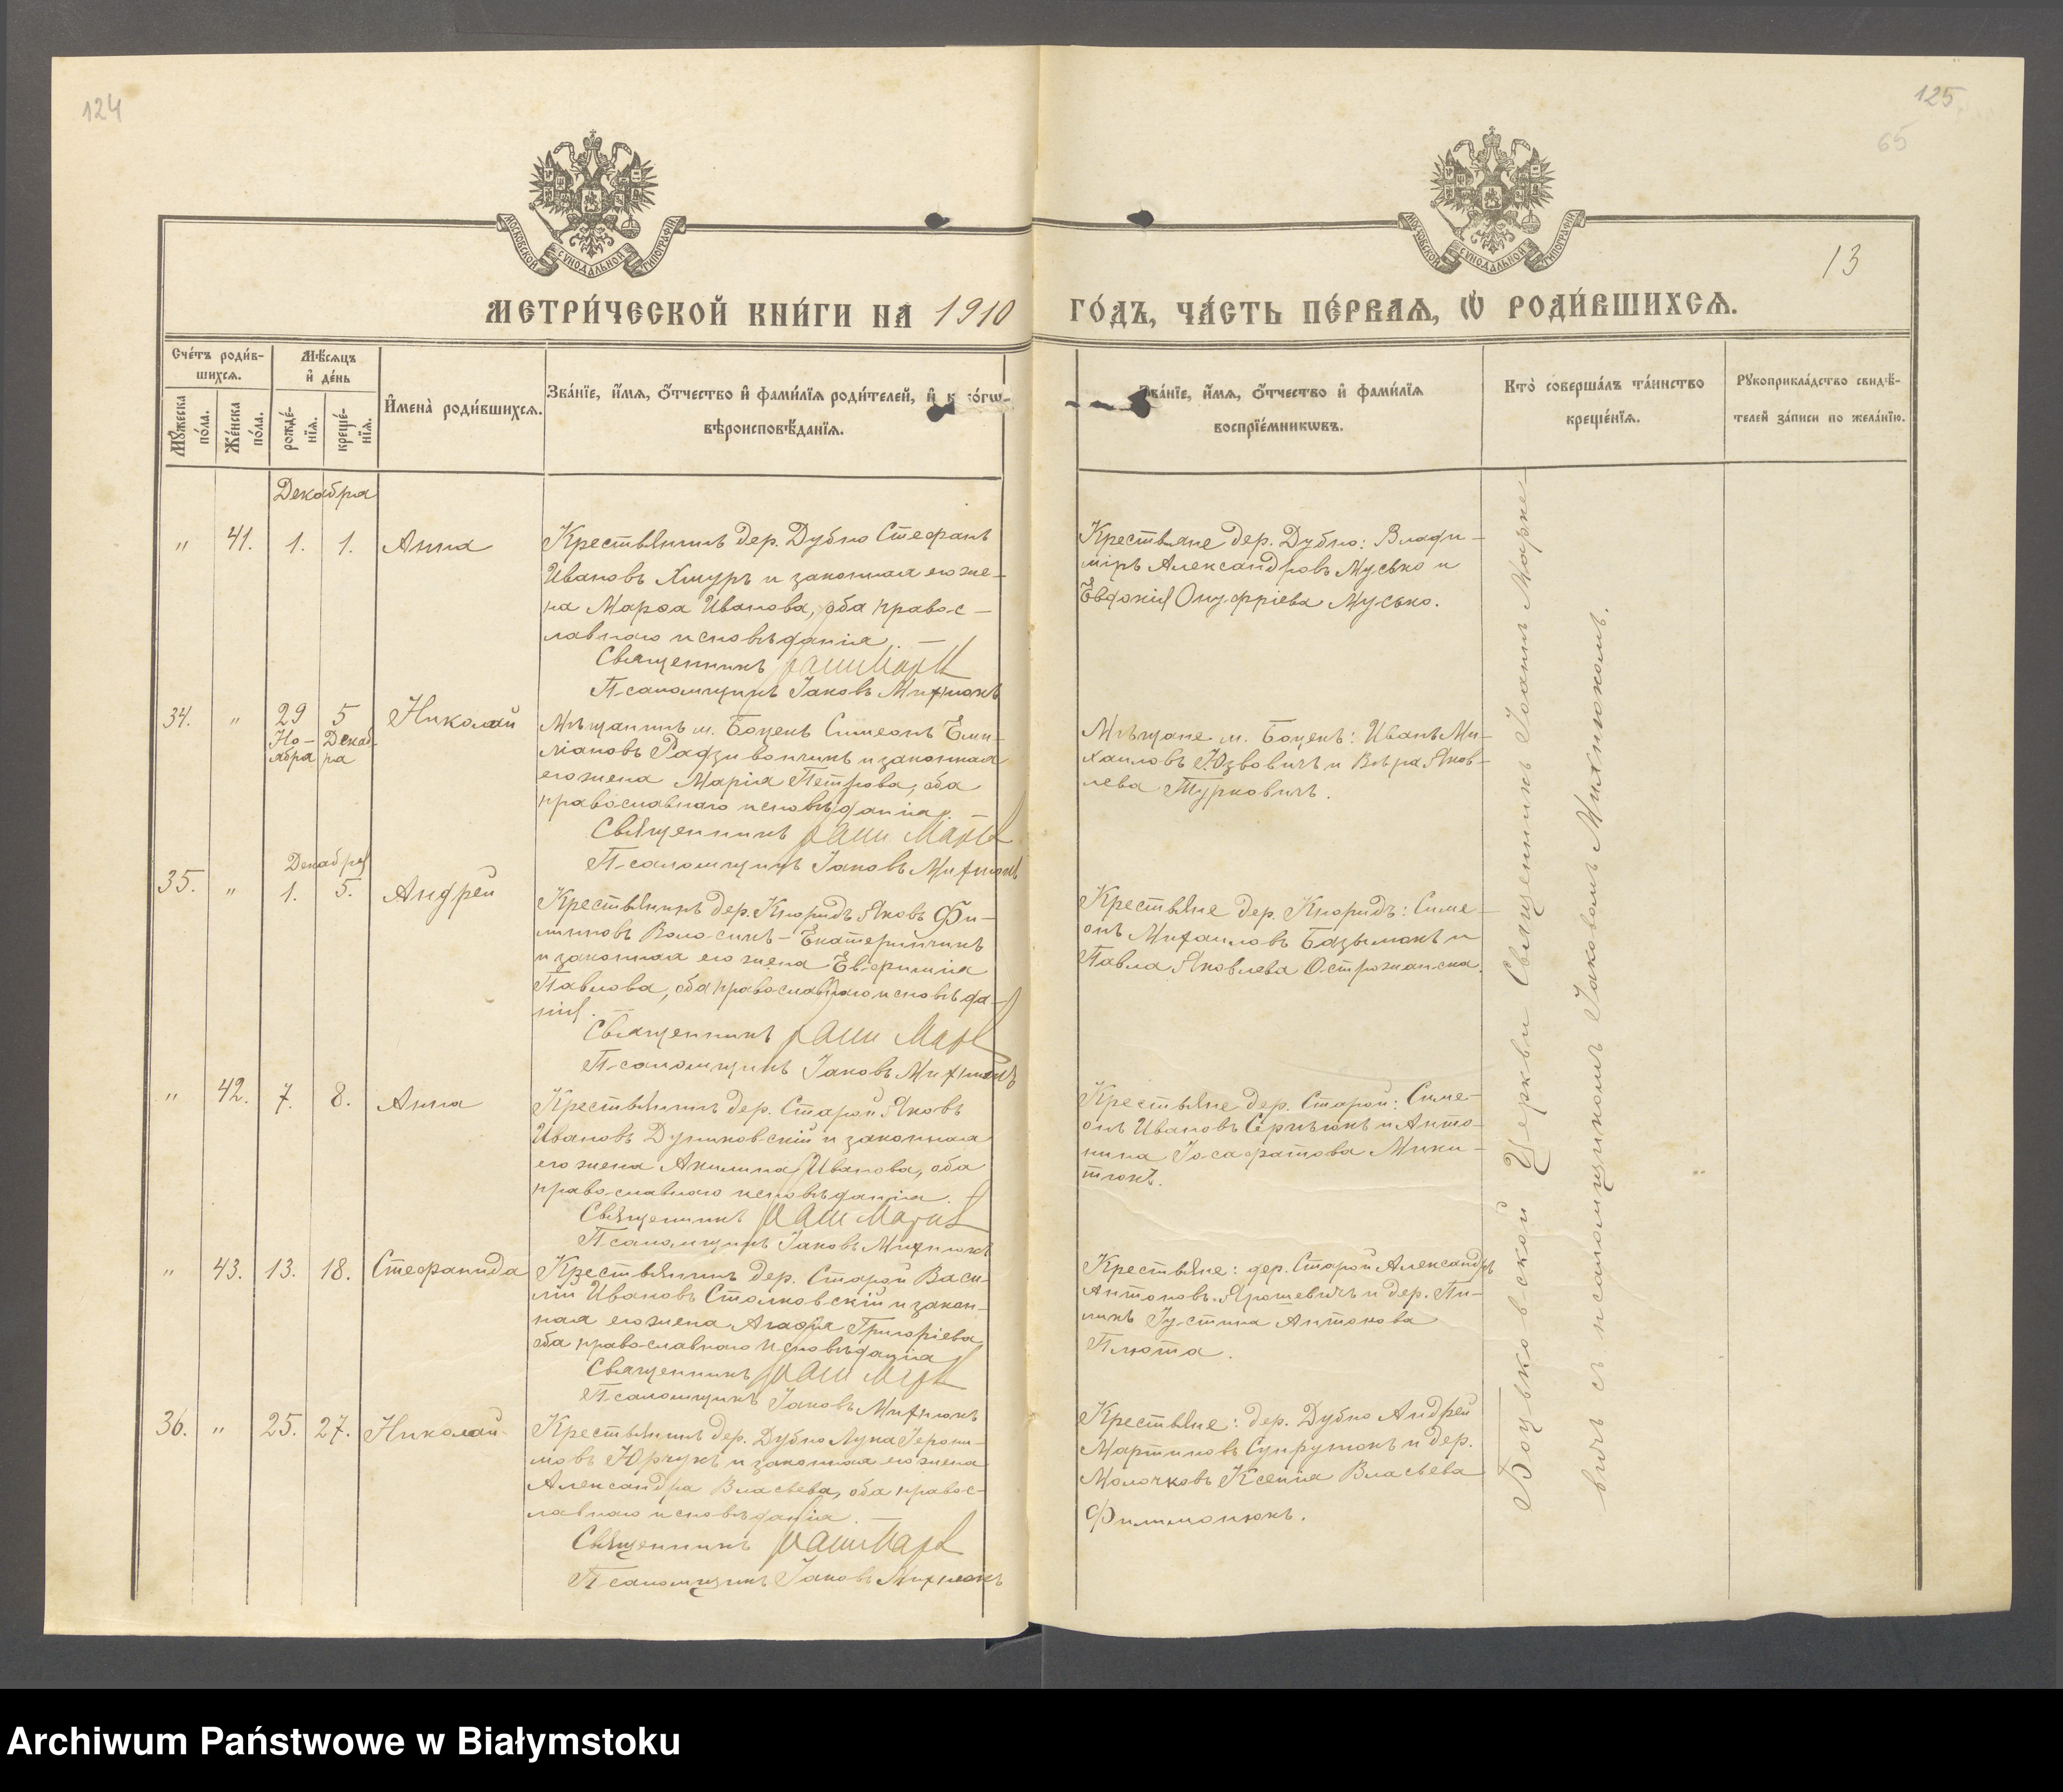 124
125
65
13
МОСКОВСКОЙ СѴНОДАЛЬНОЙ ТИПОГРАФІИ
МОСКОВСКОЙ СѴНОДАЛЬНОЙ ТИПОГРАФІИ
МЕТРИ́ЧЕСКОЙ КНИ́ГИ НА 1910 ГО́ДЪ, ЧА́СТЬ ПЕ́РВАѦ, Ѡ҆ РОДИ́ВШИХСѦ.
Сче́тъ роди́в-
шихсѧ.
Мꙋ́жеска
по́ла.
Же́нска
по́ла.
Мѣ́сѧцъ
и҆ де́нь
рожде́-
нїѧ.
креще́-
нїѧ.
И҆мена̀ роди́вшихсѧ.
Зва́нїе, и҆́мѧ, ѻ҆́тчество и҆ фами́лїѧ роди́телей, и҆ к ко́гѡ-
вѣроисповѣ́данїѧ.
Зва́нїе, и҆́мѧ, ѻ҆́тчество и҆ фами́лїѧ
воспрїе́мникѡвъ.
Кто̀ соверша́лъ та́инство
креще́нїѧ.
Рꙋкоприкла́дство свидѣ́-
телей за́писи по жела́нїю.
Декабря
" 41. 1. 1. Анна
Крестьянинъ дер. Дубно Стефанъ
Ивановъ Хмуръ и законная его же-
на Марѳа Иванова, оба правос-
лавнаго исповѣданія.
Священникъ
Псаломщикъ Іаковъ Михнюкъ
Крестьяне дер. Дубно: Влади-
міръ Александровъ Мусько и
Евдокія Онуфріева Мусько.
34. " 29 5 Николай
Но- Декаб-
ября ря
Мѣщанинъ м. Боцекъ Симеонъ Еми-
ліановъ Радзивончикъ и законная
его жена Марія Петрова, оба
православнаго исповѣданія.
Священникъ
Псаломщикъ Іаковъ Михнюкъ
Мѣщане м. Боцекъ: Иванъ Ми-
хаиловъ Юзвовичъ и Вѣра Яков-
лева Турковичъ.
Декабря
35. " 1. 5. Андрей
Крестьянинъ дер. Кноридъ Яковъ Фи-
липовъ Волосикъ-Екатеринчикъ
и законная его жена Евфимія
Павлова, оба православнаго исповѣда-
нія.
Священникъ
Псаломщикъ Іаковъ Михнюкъ
Крестьяне дер. Кноридъ: Симе-
онъ Михаиловъ Базылюкъ и
Павла Яковлева Острожанска.
" 42. 7. 8. Анна
Крестьянинъ дер. Старой Яковъ
Ивановъ Дуниковскій и законная
его жена Акилина Иванова, оба
православнаго исповѣданія.
Священникъ
Псаломщикъ Іаковъ Михнюкъ
Крестьяне дер. Старой: Симе-
онъ Ивановъ Сергѣюкъ и Анто-
нина Іосафатова Мики-
тюкъ.
" 43. 13. 18. Стефанида
Крестьянинъ дер. Старой Васи-
лій Ивановъ Столковскій и закон-
ная его жена Агафія Григоріева
оба православнаго исповѣданія
Священникъ
Псаломщикъ Іаковъ Михнюкъ
Крестьяне: дер. Старой Александръ
Антоновъ Ярошевичъ и дер. Пи-
ликъ Іустина Антонова
Плюта.
36. " 25. 27. Николай
Крестьянинъ дер. Дубно Лука Іерони-
мовъ Юрчукъ и законная его жена
Александра Власьева, оба правос-
лавнаго исповѣданія.
Священникъ
Псаломщикъ Іаковъ Михнюкъ
Крестьяне: дер. Дубно Андрей
Мартиновъ Супрунюкъ и дер.
Молочковъ Ксенія Власьева
Филимонюкъ.
Боцьковской Церкви Священникъ Іоаннъ Марке-
вичъ съ псаломщикомъ Іаковомъ Михнюкомъ.
Archiwum Państwowe w Białymstoku